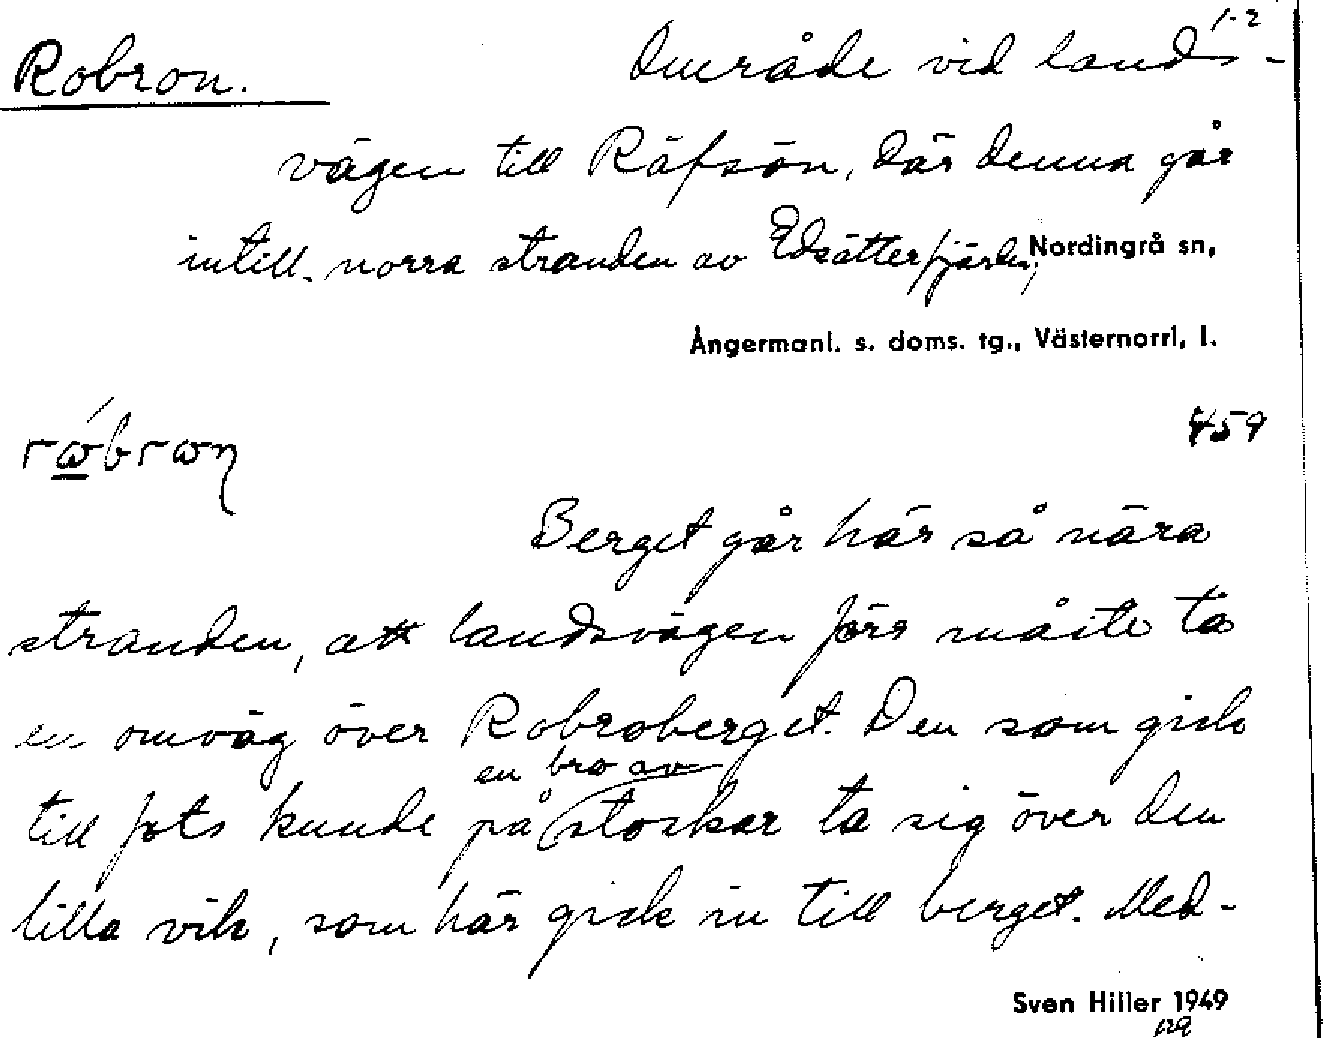 1-2
Robron. Område vid lands-
vägen till Räfsön, där denna går
intill norra stranden av Edsätterfjärden, Nordingrå sn,
Ångermanl. s. doms. tg., Västernorrl. l.
459
Berget går här så nära
stranden, att landsvägen förr måste ta
en omväg över Robroberget. Den som gick
en bro av
till fots kunde på stockar ta sig över den
lilla vik, som här gick in till berget. Med-
Sven Hiller 1949